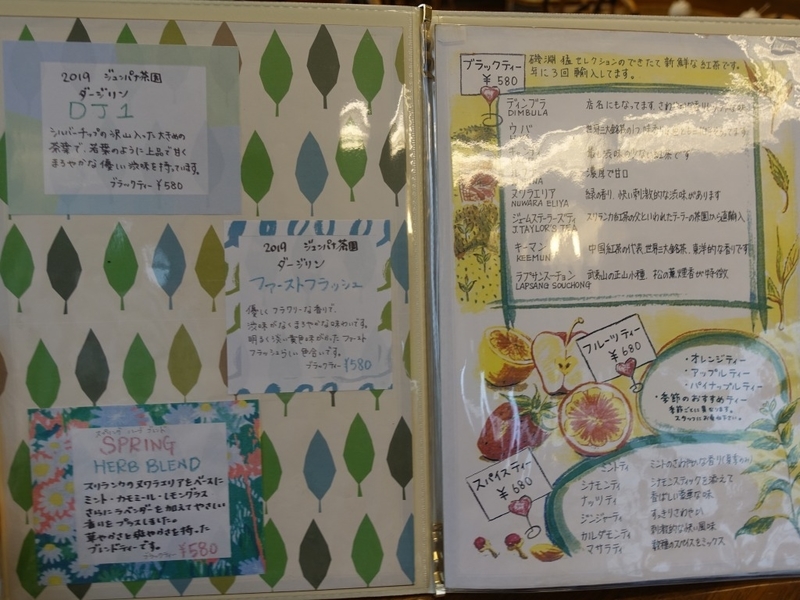 2019 ジュンパナ茶園
ダージリン
DJ1
シルバーチップの沢山入った大きめの
茶葉で、若葉のように上品で甘く
まろやかな優しい渋味を持っています。
ブラックティー ¥580
2019 ジュンパナ茶園
ダージリン
ファーストフラッシュ
優しくフラワリーな香りで、
渋味がなくまろやかな味わいです。
明るく淡い黄色味がかったファースト
フラッシュらしい色合いです。
ブラックティー ¥580
SPRING
HERB BLEND
スリランカのヌワラエリアをベースに
ミント・カモミール・レモングラス
さらにラベンダーを加えてやさしい
香りをプラスしました。
華やかさと爽やかさを持った
ブレンドティーです。
¥580
ブラックティー
¥580
磯淵 猛セレクションのできたて新鮮な紅茶です。
年に3回輸入してます。
ディンブラ 店名にもなってます
DIMBULA
ウバ
ヌワラエリア 緑の香り、快い刺激的な渋味があります
NUWARA ELIYA
ジェームステーラーズティ スリランカ紅茶の父といわれたテーラーの茶園から直輸入
J.TAYLOR'S TEA
キーマン 中国紅茶の代表、世界三大銘茶、東洋的な香りです
KEEMUN
ラプサンスーチョン 武夷山の正山小種 松の薫煙香が特徴
LAPSANG SOUCHONG
フルーツティー
¥680
・オレンジティー
・アップルティー
・パイナップルティー
・季節のおすすめティー
季節ごとに異なります。
スタッフにお尋ね下さい。
スパイスティー
¥680
ミンティ ミントのさわやかな香り
シナモンティ シナモンスティックを添えて
ナッツティ 香ばしい豊潤な味
ジンジャーティ すっきりさわやか
カルダモンティ 刺激的な快い風味
マサラティ 数種のスパイスをミックス